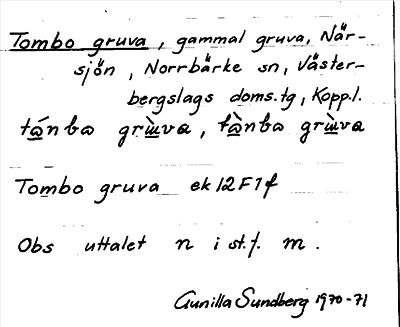 Tombo gruva, gammal gruva, När-
sjön, Norrbärke sn, Väster-
bergslags doms.tg, Kopp.l.
tánba grùva, tànba grùva
Tombo gruva ek 12F1f
Obs uttalet n i st.f. m.
Gunilla Sundberg 1970-71